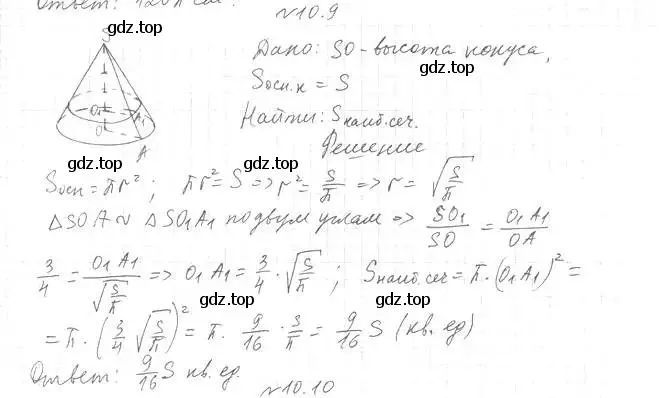 Ответ: 120π см².
N10.9
gdz.top
Дано: SO - высота конуса,
gdz.top
Sосн.к = S
Найти: Sнаиб.сеч.
S
O₁ A₁
O
A
gdz.top
Решение
gdz.top
Sосн = πr²; πr² = S => r² = S/π => r = √(S/π)
△SOA ~ △SO₁A₁ по двум углам => SO₁/SO = O₁A₁/OA
gdz.top
3/4 = O₁A₁/√(S/π) => O₁A₁ = 3/4 · √(S/π); Sнаиб.сеч = π · (O₁A₁)² =
gdz.top
= π · (3/4 √(S/π))² = π · 9/16 · S/π = 9/16 S (кв. ед)
Ответ: 9/16 S кв. ед.
gdz.top
N10.10